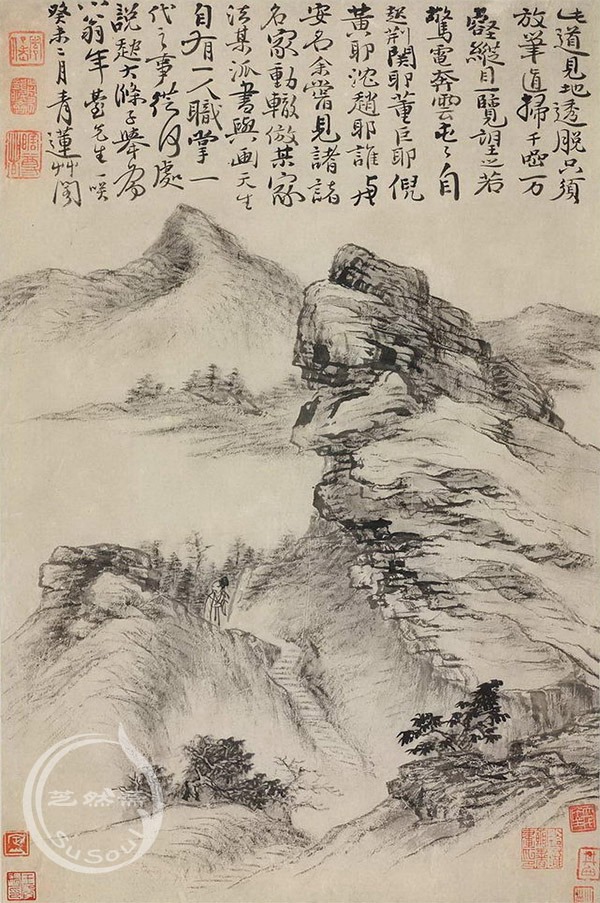 此道見地透脫只須
放筆直掃千巖万
壑縱目一覽望之若
驚電奔雲屯々自
起荊關耶董巨耶倪
黃耶沈趙耶誰與
安名余嘗見諸諸
名家動轍倣某家
法某派書與画天生
自有一人職掌一
代之事從何處
說起大滌子舉為
小翁年臺先生一咲
癸未二月青蓮艸閣